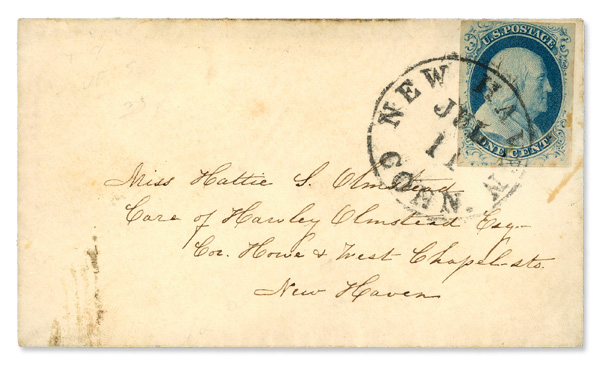 U.S. POSTAGE
ONE CENT.
NEW HAVEN CONN.
JUL
11
Miss Hattie S. Olmstead
Care of Hawley Olmstead Esq.
Cor. Howe & West Chapel sts.
New Haven